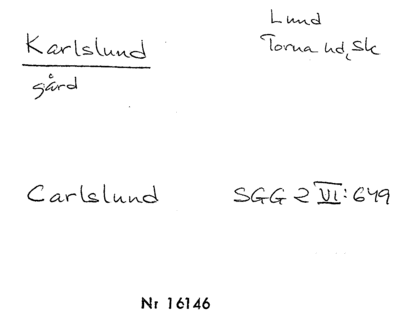 Karlslund
Lund
Torna hd, Sk
gård
Carlslund
SGG 2 VI: 649
Nr 16146